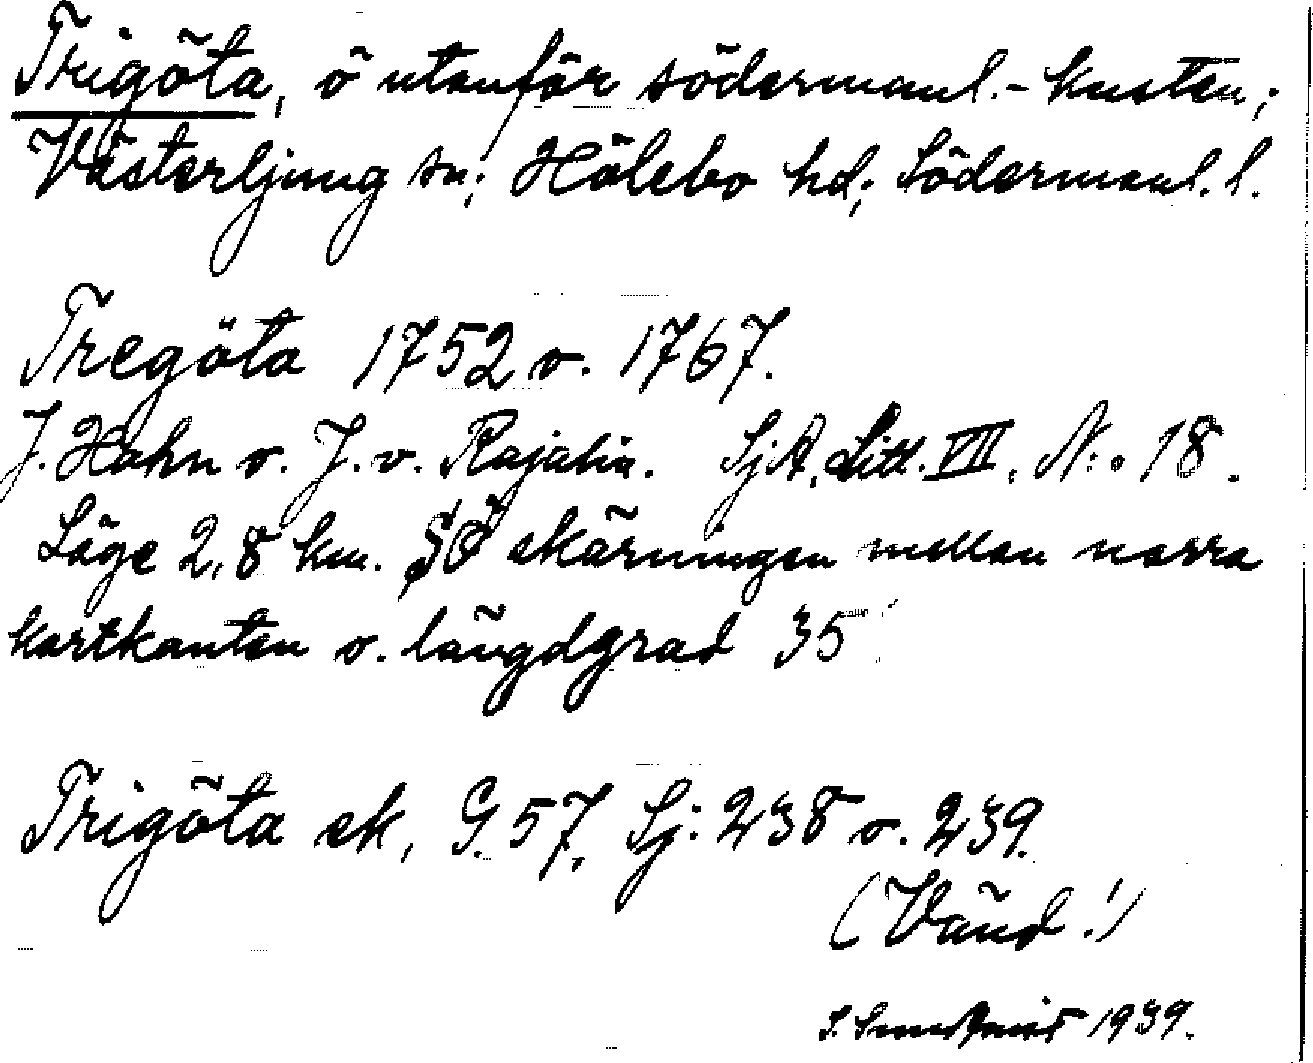 Trigöta, ö utanför södermanl.-kusten;
Västerljung sn; Hölebo hd; Södermanl. l.
Tregöta 1752 o. 1767.
J. Hahn o. J. v. Rajalin. SjA. Litt. VIII. N:o 18.
Läge 2,8 km. SÖ skärningen mellan norra
kartkanten o. längdgrad 35
Trigöta sk, G. 57, Sj: 238 o. 239.
(Vänd!)
S. 1939.